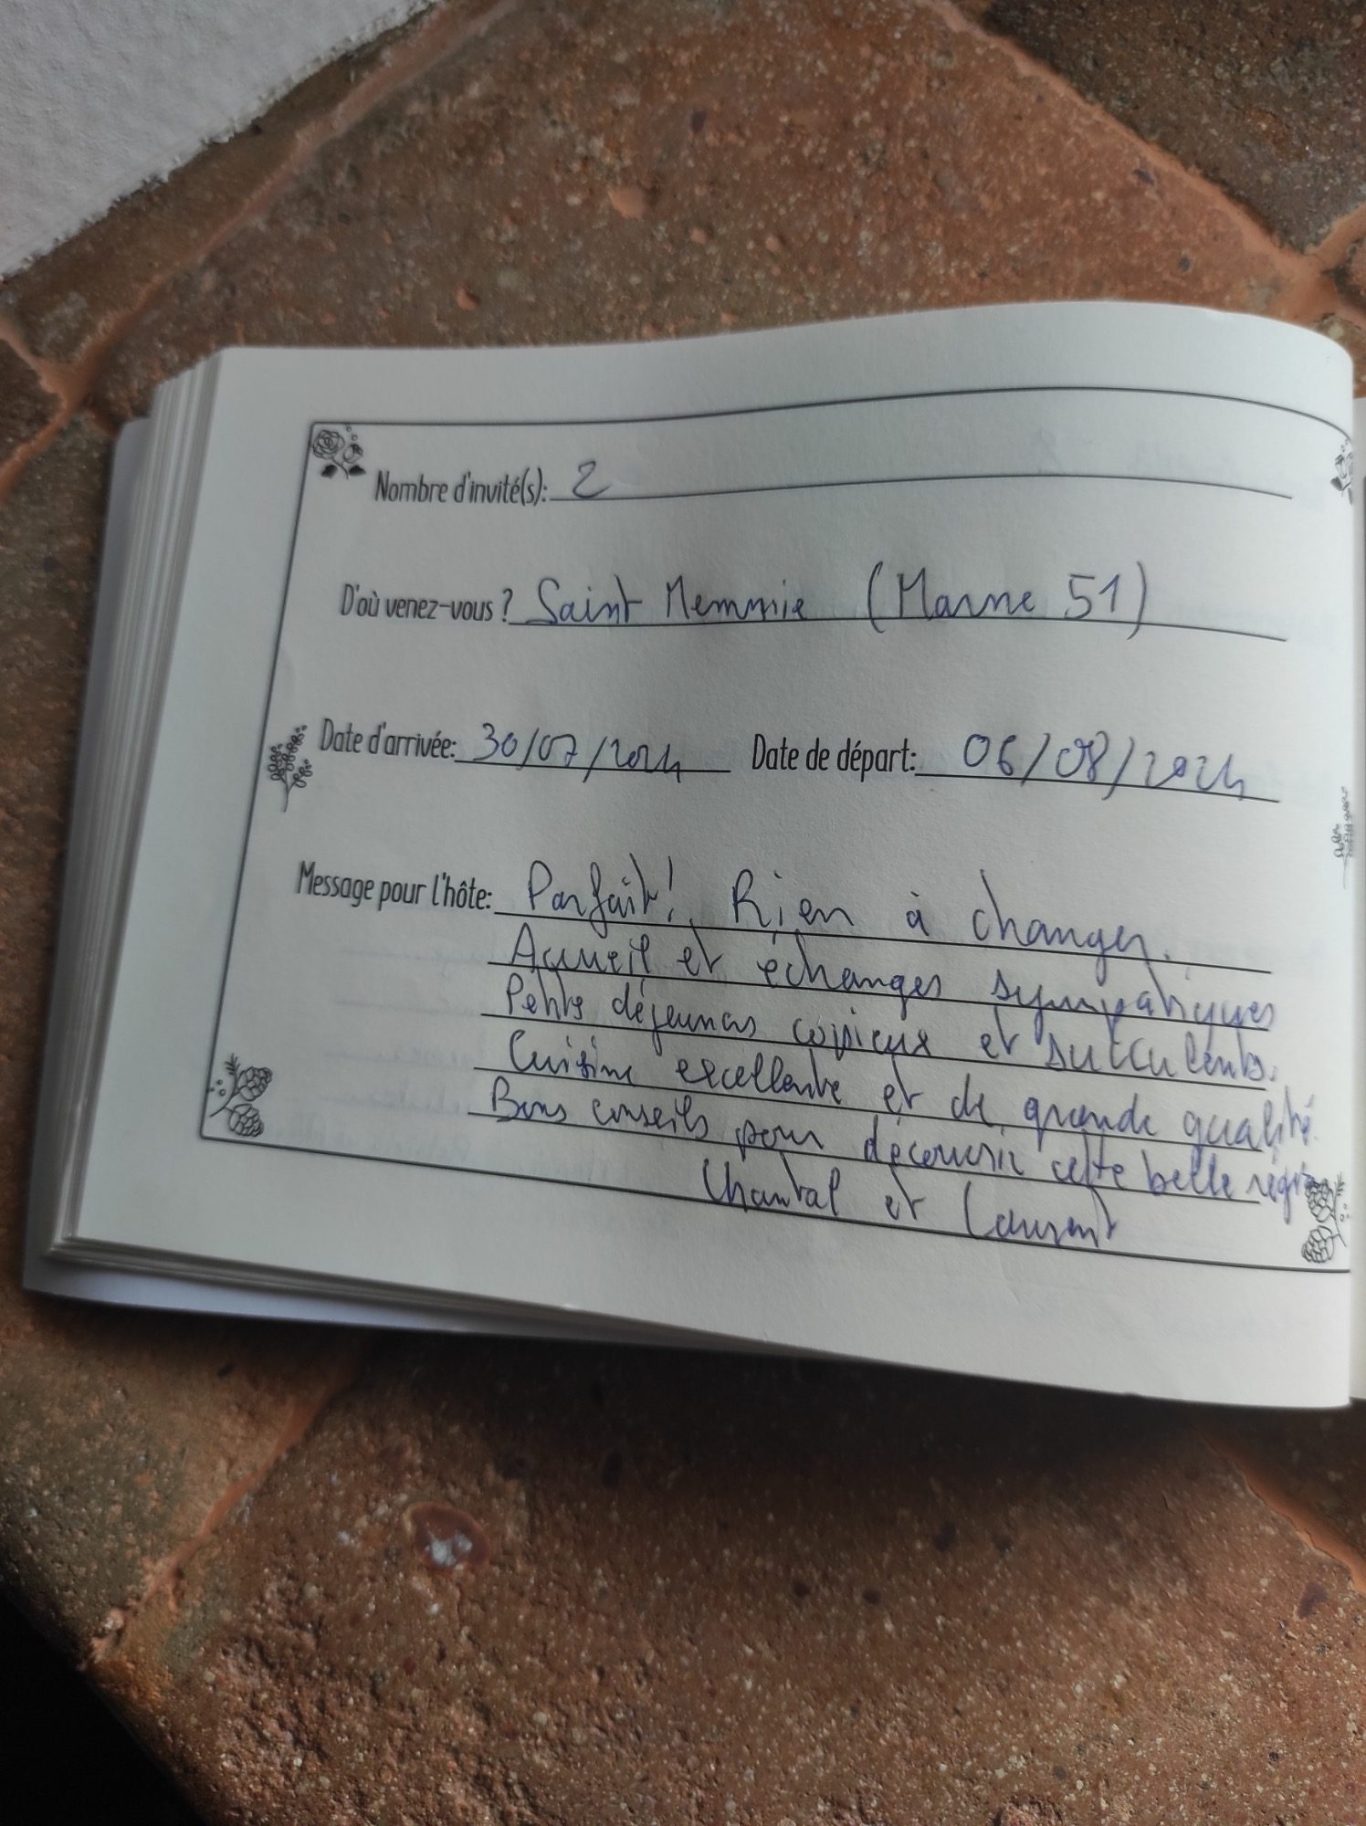 Nombre d'invité(s): 2
D'où venez-vous ? Saint Memmie (Marne 51)
Date d'arrivée: 30/07/2024 Date de départ: 06/08/2024
Message pour l'hôte: Parfait! Rien à changer.
Accueil et échanges sympatiques
Petits déjeuners copieux et succulents.
Cuisine excellente et de grande qualité.
Bons conseils pour découvrir cette belle région
Chantal et Laurent